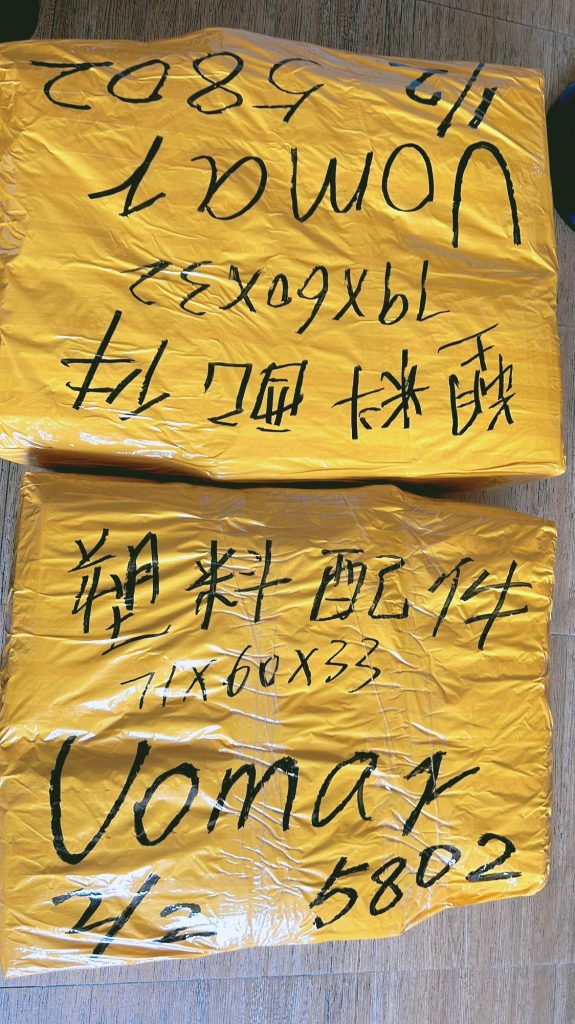 1/2 5802
Uomar
79X60X32
塑料配件
塑料配件
71X60X33
Uomar
2/2 5802